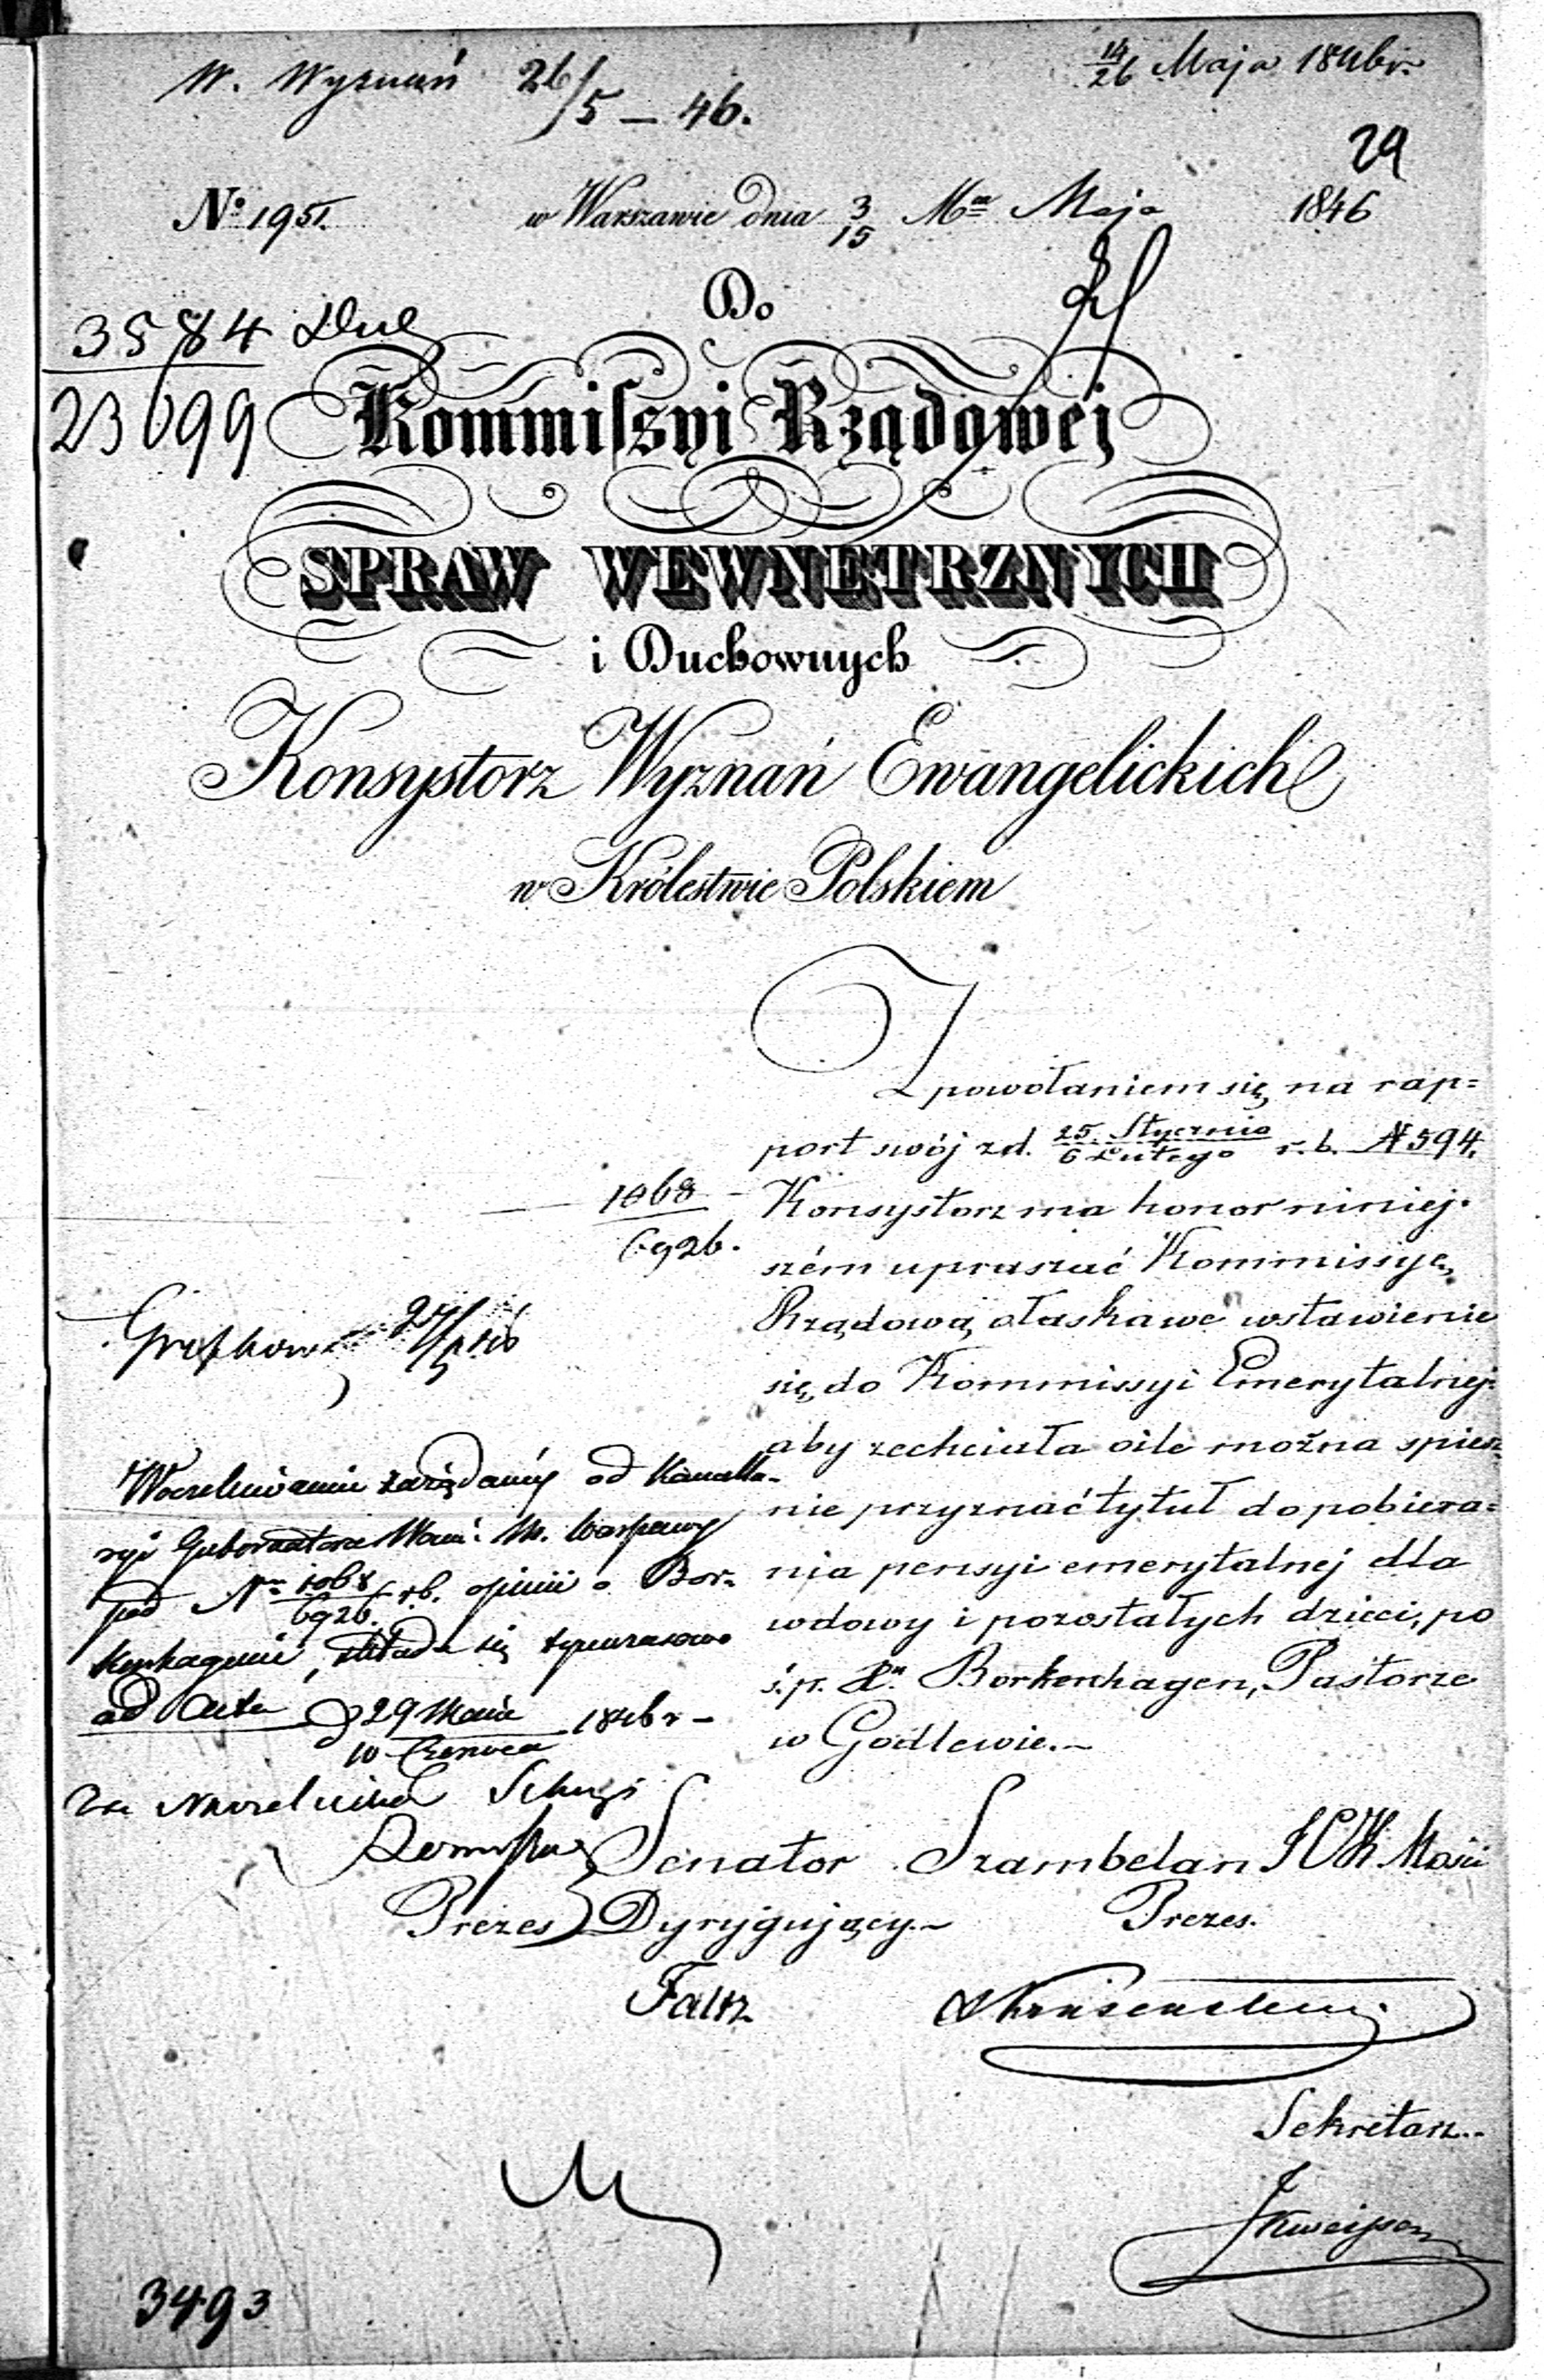 W. Wyznań 26/5 – 46.
14/26 Maja 1846 r.
29
No 1951. w Warszawie dnia 3/15 Mca Maja 1846
Do
3584
23099
Kommissyi Rządowéj
SPRAW WEWNĘTRZNYCH
i Duchownych
Konsystorz Wyznań Ewangelickich
w Królestwie Polskiem
Z powołaniem się na rap=
port swój z d. 25 Stycznia/6 Lutego r. b. N 594.
1068/6926.
Konsystorz ma honor niniej=
szém upraszać Kommissyę
Rządową o łaskawe wstawienie
27/5
się do Kommissyi Emerytalnej
aby zechciała o ile można spiesz
nie przyznać tytuł do pobiera=
nia pensyi emerytalnej dla
wdowy i pozostałych dzieci, po
ś. p. Xn. Borkenhagen, Pastorze
w Godlewie.–
W oczekiwaniu zażądanéj od Kancella-
ryi Gubernatora M. Warszawy
pod Nrm 1068/6926. r. b. opinii o Bor-
kenhagenie, składa się tymczasowo
ad Acta d 29 Maja/10 Czerwca 1846 r –
Za Naczelnika Sekcyi
Senator Szambelan JCK Mości
Prezes Dyrygujący.– Prezes.
Faltz
Sekretarz.
3493